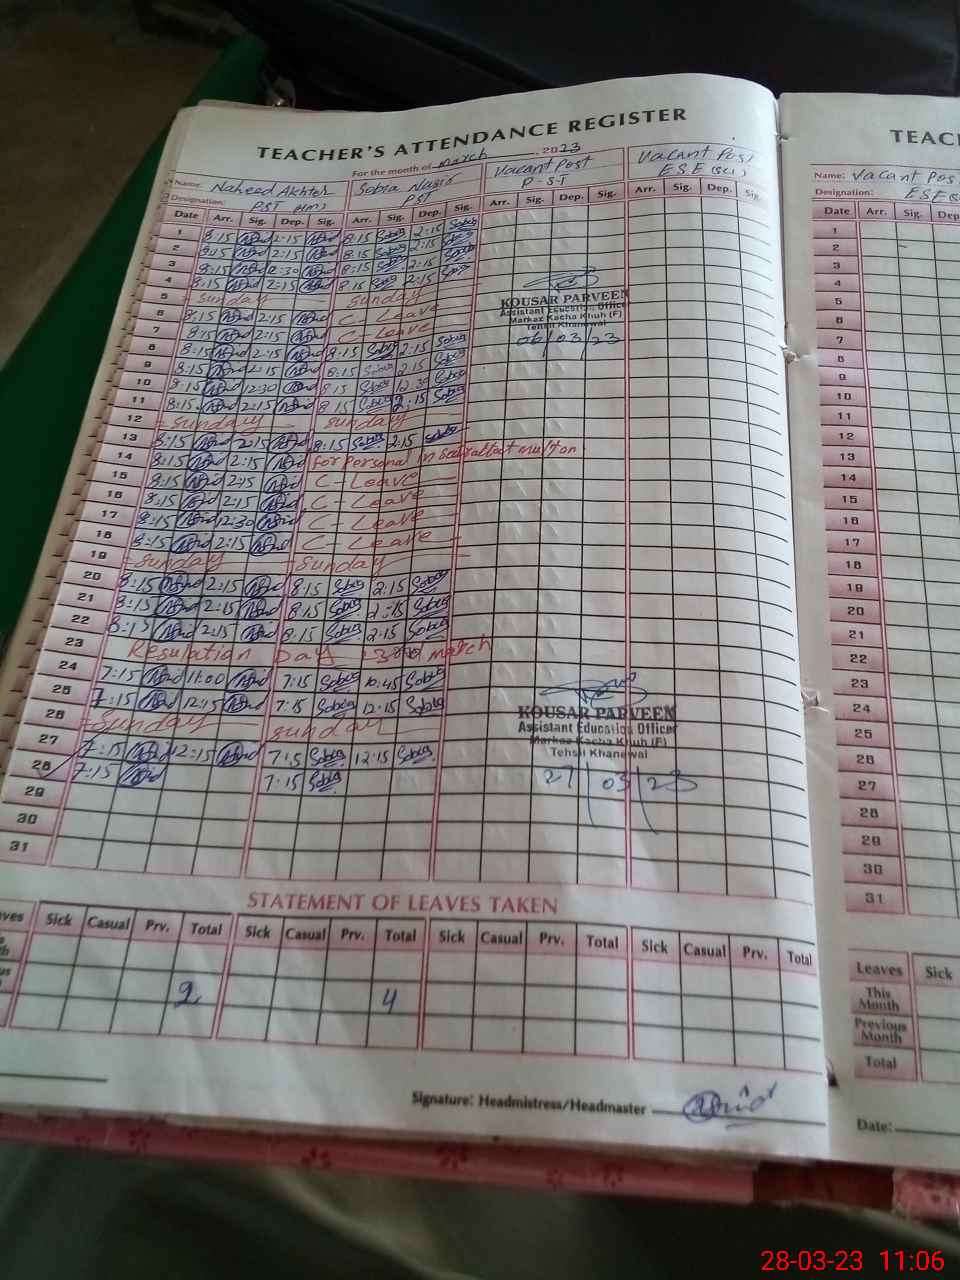 TEACHER'S ATTENDANCE REGISTER
For the month of March, 2023
Name: Naheed Akhter Sobia Nasir Vacant Post Vacant Post
Designation: PST (HM) PST P-S-T E.S.E (Sci)
Date Arr. Sig. Dep. Sig. Arr. Sig. Dep. Sig. Arr. Sig. Dep. Sig. Arr. Sig. Dep. Sig.
1 8:15 2:15 8:15 Sobia 2:15 Sobia
2 8:15 2:15 8:15 Sobia 2:15 Sobia
3 8:15 12:30 8:15 Sobia 2:15 Sobia
4 8:15 2:15 8:15 Sobia 2:15 Sobia
5 Sunday Sunday
6 8:15 2:15 C-Leave
7 8:15 2:15 C-Leave
8 8:15 2:15 8:15 Sobia 2:15 Sobia
9 8:15 2:15 8:15 Sobia 2:15 Sobia
10 8:15 12:30 8:15 Sobia 12:30 Sobia
11 8:15 2:15 8:15 Sobia 2:15 Sobia
12 Sunday Sunday
13 8:15 2:15 8:15 Sobia 2:15 Sobia
14 8:15 2:15 For Personal
15 8:15 2:15 C-Leave
16 8:15 2:15 C-Leave
17 8:15 12:30 C-Leave
18 8:15 2:15 C-Leave
19 Sunday Sunday
20 8:15 2:15 8:15 Sobia 2:15 Sobia
21 8:15 2:15 8:15 Sobia 2:15 Sobia
22 8:15 2:15 8:15 Sobia 2:15 Sobia
23 Resulation Day 23rd march
24 7:15 11:00 7:15 Sobia 10:45 Sobia
25 7:15 12:15 7:15 Sobia 12:15 Sobia
26 Sunday Sunday
27 7:15 12:15 7:15 Sobia 12:15 Sobia
28 7:15 7:15 Sobia
29
30
31
KOUSAR PARVEEN
Assistant Education Officer
Markaz Kacha Khuh (F)
Tehsil Khanewal
06/03/23
KOUSAR PARVEEN
Assistant Education Officer
Markaz Kacha Khuh (F)
Tehsil Khanewal
27/03/23
STATEMENT OF LEAVES TAKEN
Sick Casual Prv. Total Sick Casual Prv. Total Sick Casual Prv. Total Sick Casual Prv. Total
2 4
Signature: Headmistress/Headmaster
TEAC
Name: Vacant Pos
Designation: ESE(S
Date Arr. Sig. Dep
1
2
3
4
5
6
7
8
9
10
11
12
13
14
15
16
17
18
19
20
21
22
23
24
25
26
27
28
29
30
31
Leaves Sick
This Month
Previous Month
Total
Date:
28-03-23 11:06